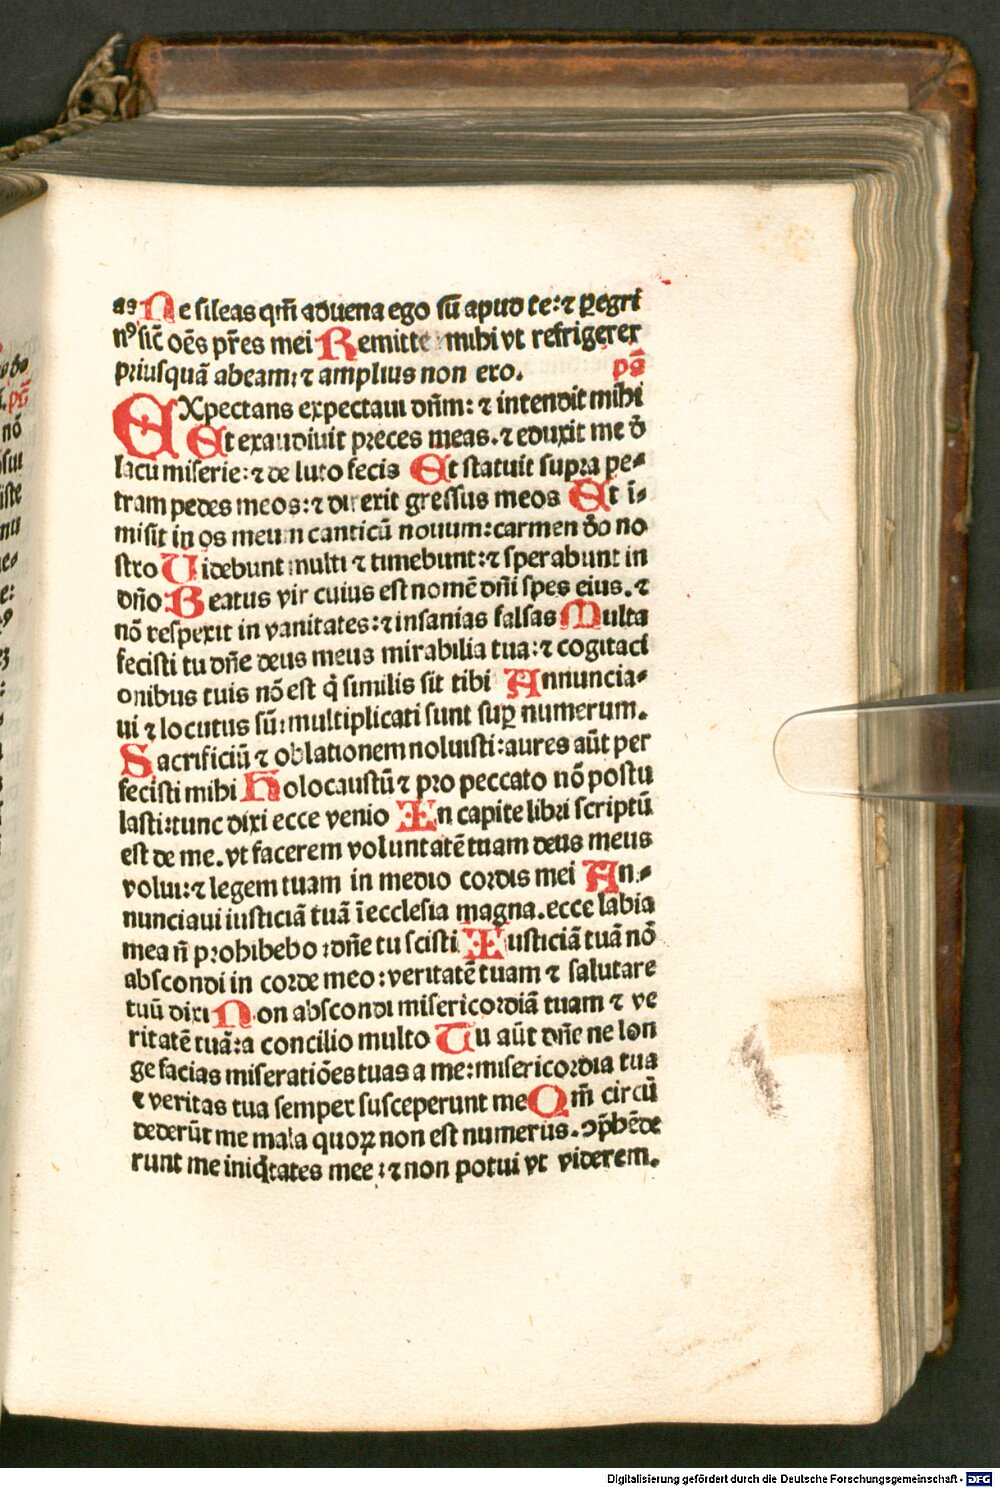 as Ne sileas qm̄ aduena ego sū apud te: ⁊ ꝑegri
nꝰ sic̄ oēs pr̄es mei Remitte mihi vt refrigerer
priusquā abeam: ⁊ amplius non ero. ps̄
EXpectans expectaui dn̄m: ⁊ intendit mihi
Et exaudiuit preces meas. ⁊ eduxit me d̄
lacu miserie: ⁊ de luto fecis Et statuit supra pe⸗
tram pedes meos: ⁊ direxit gressus meos Et ī⸗
misit in os meum canticū nouum: carmen d̄o no
stro Uidebunt multi ⁊ timebunt: ⁊ sperabunt in
dn̄o Beatus vir cuius est nomē dn̄i spes eius. ⁊
nō respexit in vanitates: ⁊ insanias falsas Multa
fecisti tu dn̄e deus meus mirabilia tua: ⁊ cogitati
onibus tuis nō est q̇ similis sit tibi Annuncia⸗
ui ⁊ locutus sū: multiplicati sunt suꝑ numerum.
Sacrificiū ⁊ oblationem noluisti: aures aūt per
fecisti mihi Holocaustū ⁊ pro peccato nō postu
lasti: tunc dixi ecce venio In capite libri scriptū
est de me. vt facerem voluntatē tuam deus meus
volui: ⁊ legem tuam in medio cordis mei An⸗
nunciaui iusticiā tuā ī ecclesia magna. ecce labia
mea n̄ prohibebo: dn̄e tu scisti Iusticiā tuā nō
abscondi in corde meo: veritatē tuam ⁊ salutare
tuū dixi Non abscondi misericordiā tuam ⁊ ve
ritatē tuā: a concilio multo Tu aūt dn̄e ne lon
ge facias miseratiōes tuas a me: misericordia tua
⁊ veritas tua semper susceperunt me Qm̄ circū
dederūt me mala quoꝝ non est numerus. ↄp̄hēde
runt me iniq̇tates mee: ⁊ non potui vt viderem.
Digitalisierung gefördert durch die Deutsche Forschungsgemeinschaft - DFG